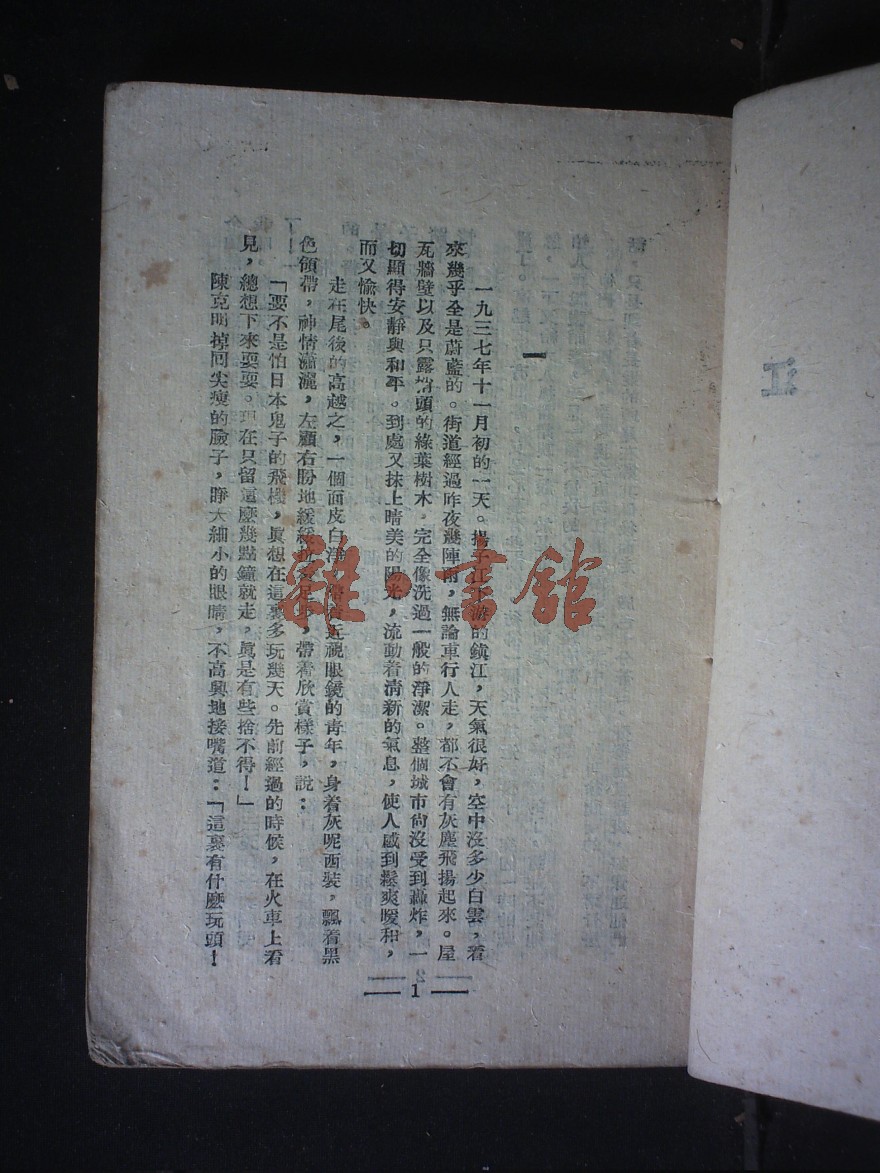 江
一
一九三七年十一月初的一天。揚子江下游的鎮江，天氣很好，空中沒多少白雲，看
來幾乎全是蔚藍的。街道經過昨夜幾陣雨，無論車行人走，都不會有灰塵飛揚起來。屋
瓦牆壁以及只露墻頭的綠葉樹木，完全像洗過一般的淨潔。整個城市尙沒受到轟炸，一
切顯得安靜與和平。到處又抹上晴美的陽光，流動着淸新的氣息，使人感到鬆爽暖和，
而又愉快。
走在尾後的高越之，一個面皮白淨，帶着近視眼鏡的靑年，身着灰呢西裝，飄着黑
色領帶，神情瀟灑，左顧右盼地緩緩足步，帶着欣賞樣子，說：
「要不是怕日本鬼子的飛機，眞想在這裏多玩幾天。先前經過的時候，在火車上看
見，總想下來耍耍。現在只留這麼幾點鐘就走，眞是有些捨不得！」
陳克明掉回尖瘦的臉子，睜大細小的眼睛，不高興地接嘴道：「這裏有什麼玩頭！
1
雜·書館